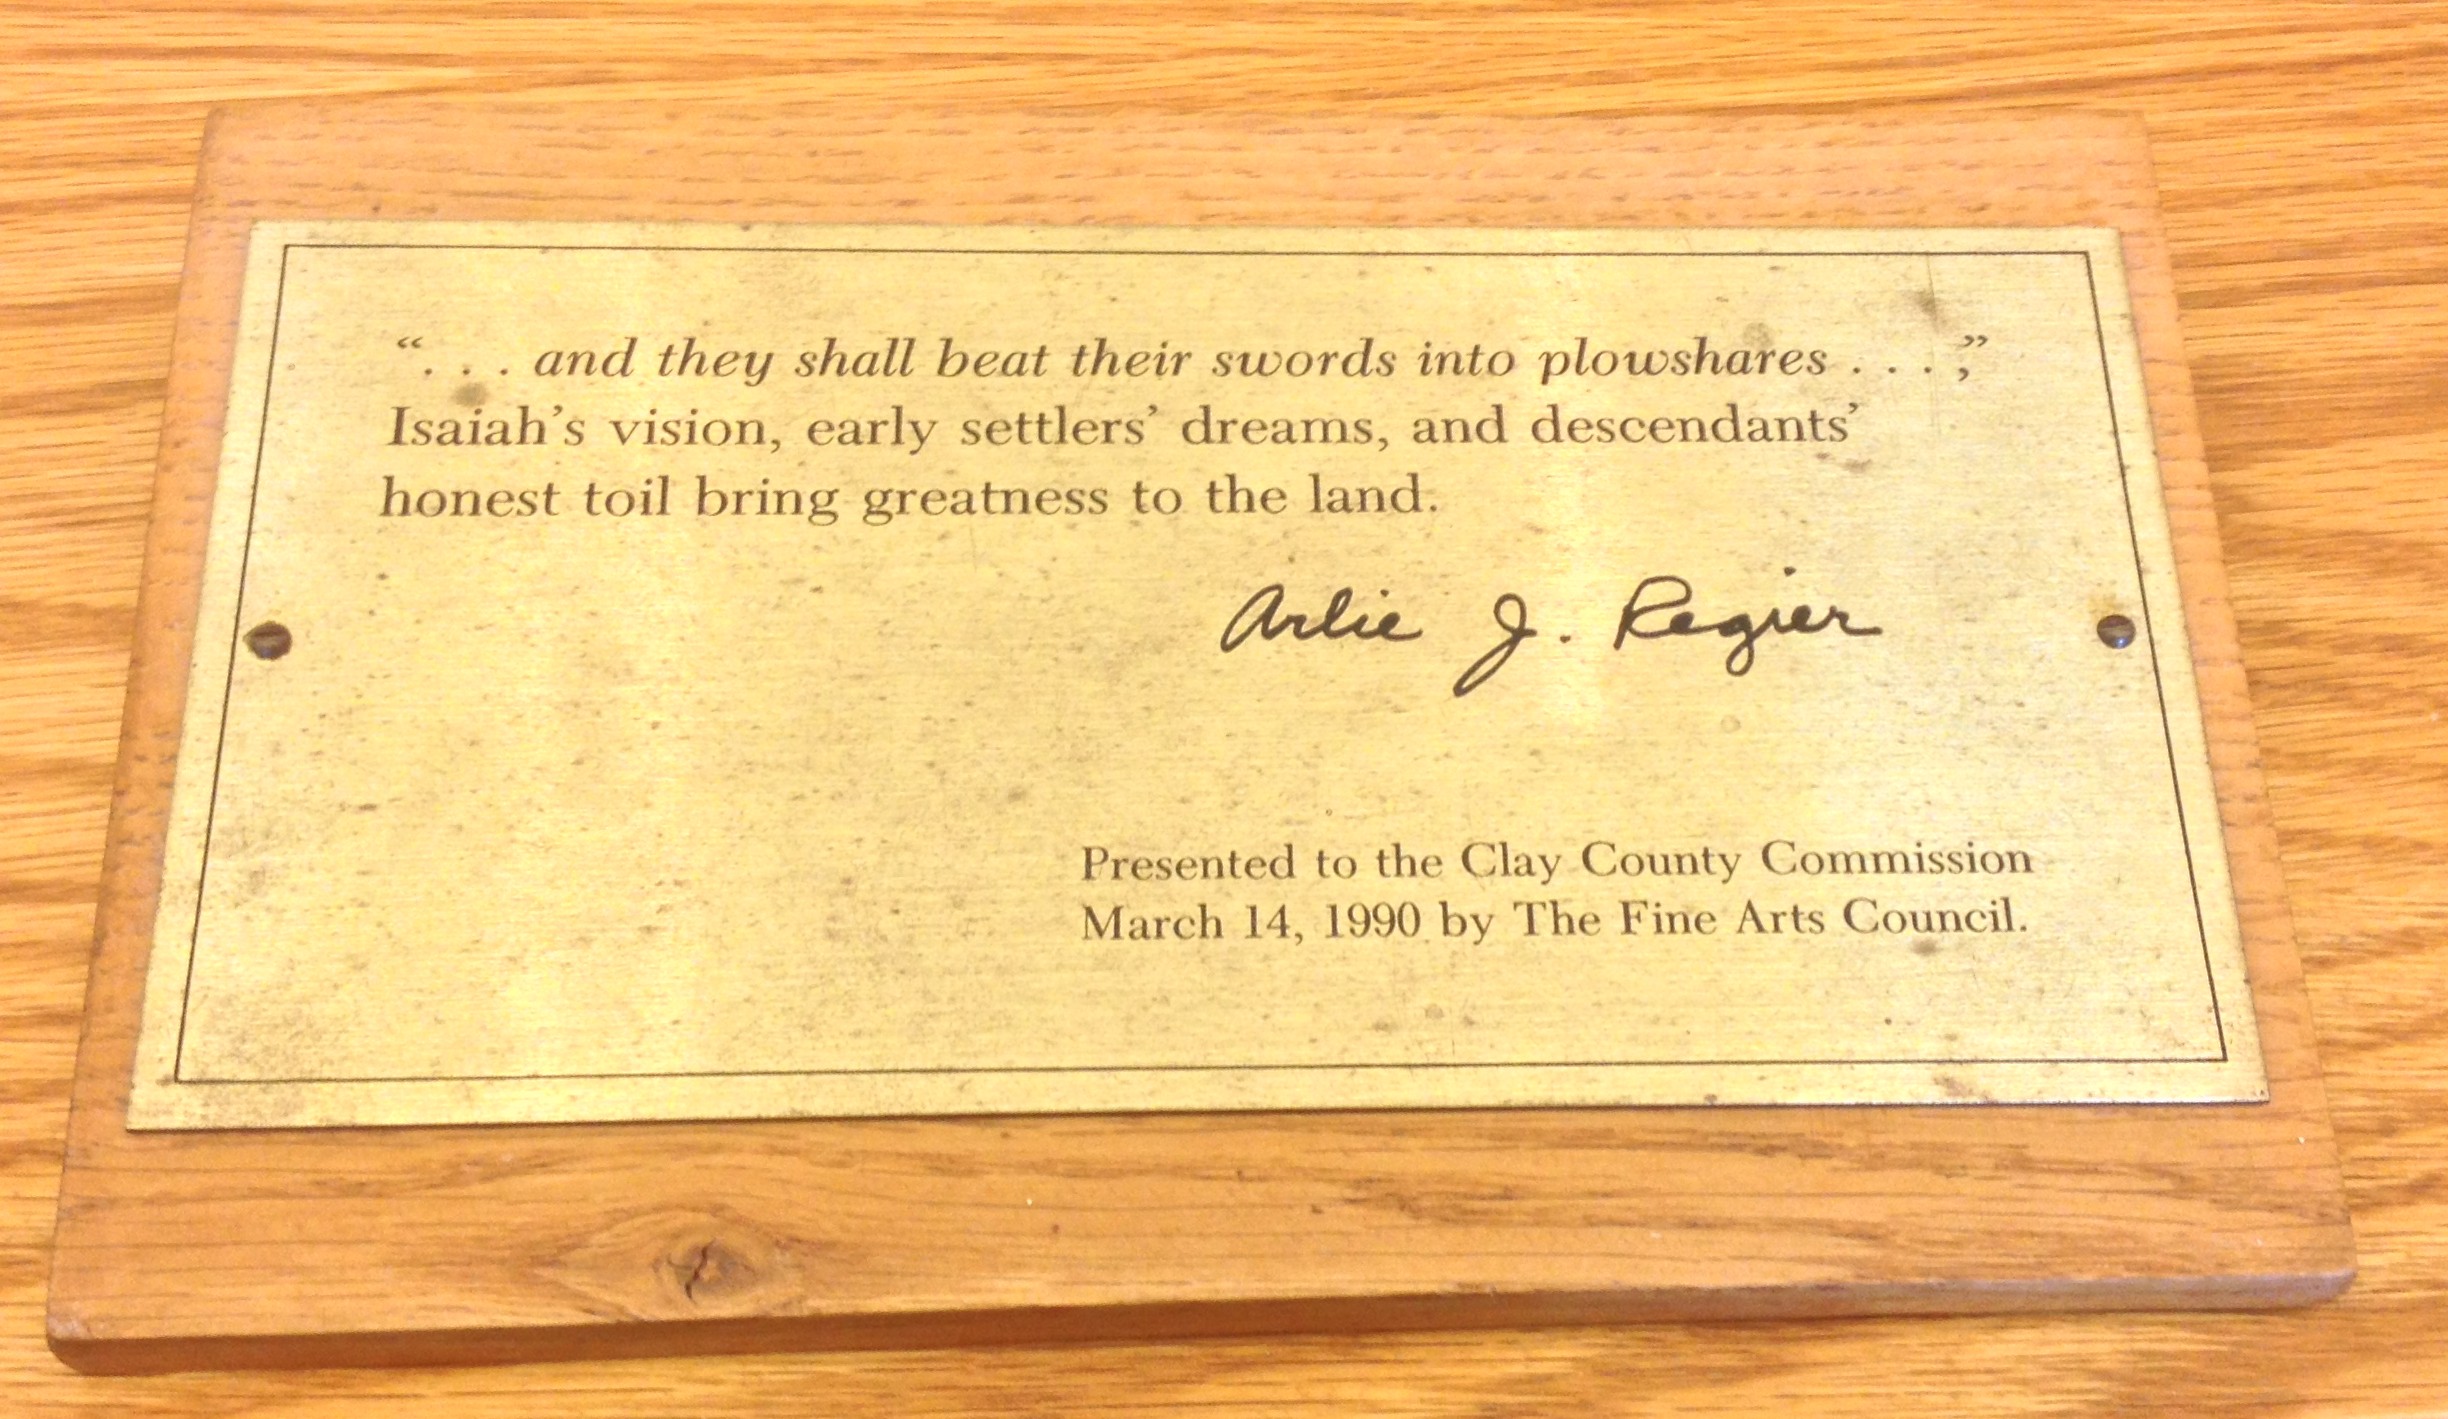 “. . . and they shall beat their swords into plowshares . . . ,”
Isaiah’s vision, early settlers’ dreams, and descendants’
honest toil bring greatness to the land.
Arlie J. Regier
Presented to the Clay County Commission
March 14, 1990 by The Fine Arts Council.